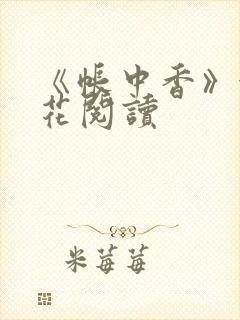 《帳中香》
花閱讀
米莓莓